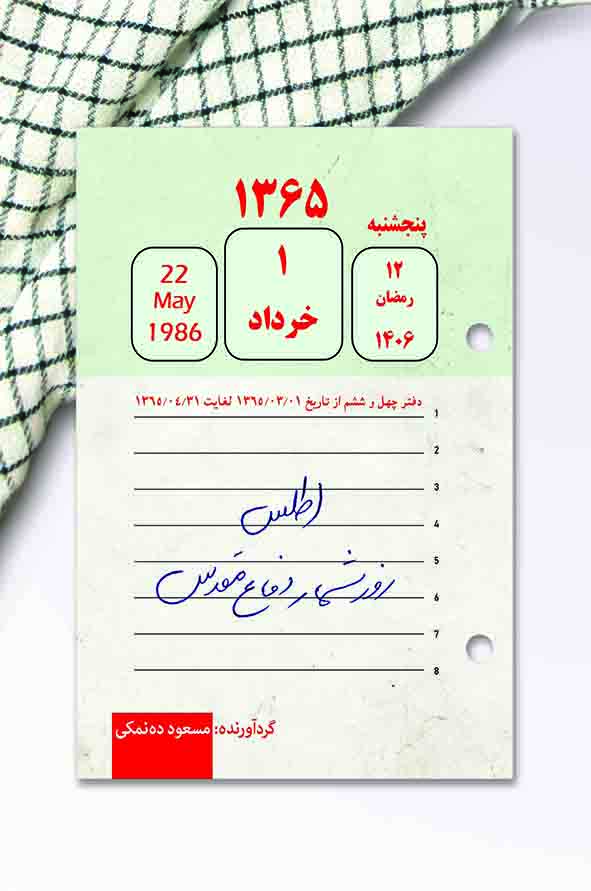 ۱۳۶۵
پنجشنبه
۱۲
رمضان
۱۴۰۶
۱
خرداد
22
May
1986
دفتر چهل و ششم از تاریخ ۱۳۶۵/۰۳/۰۱ لغایت ۱۳۶۵/۰۴/۳۱
1
2
3
اطلس
4
5
روزشمار دفاع مقدس
6
7
8
گردآورنده: مسعود ده‌نمکی